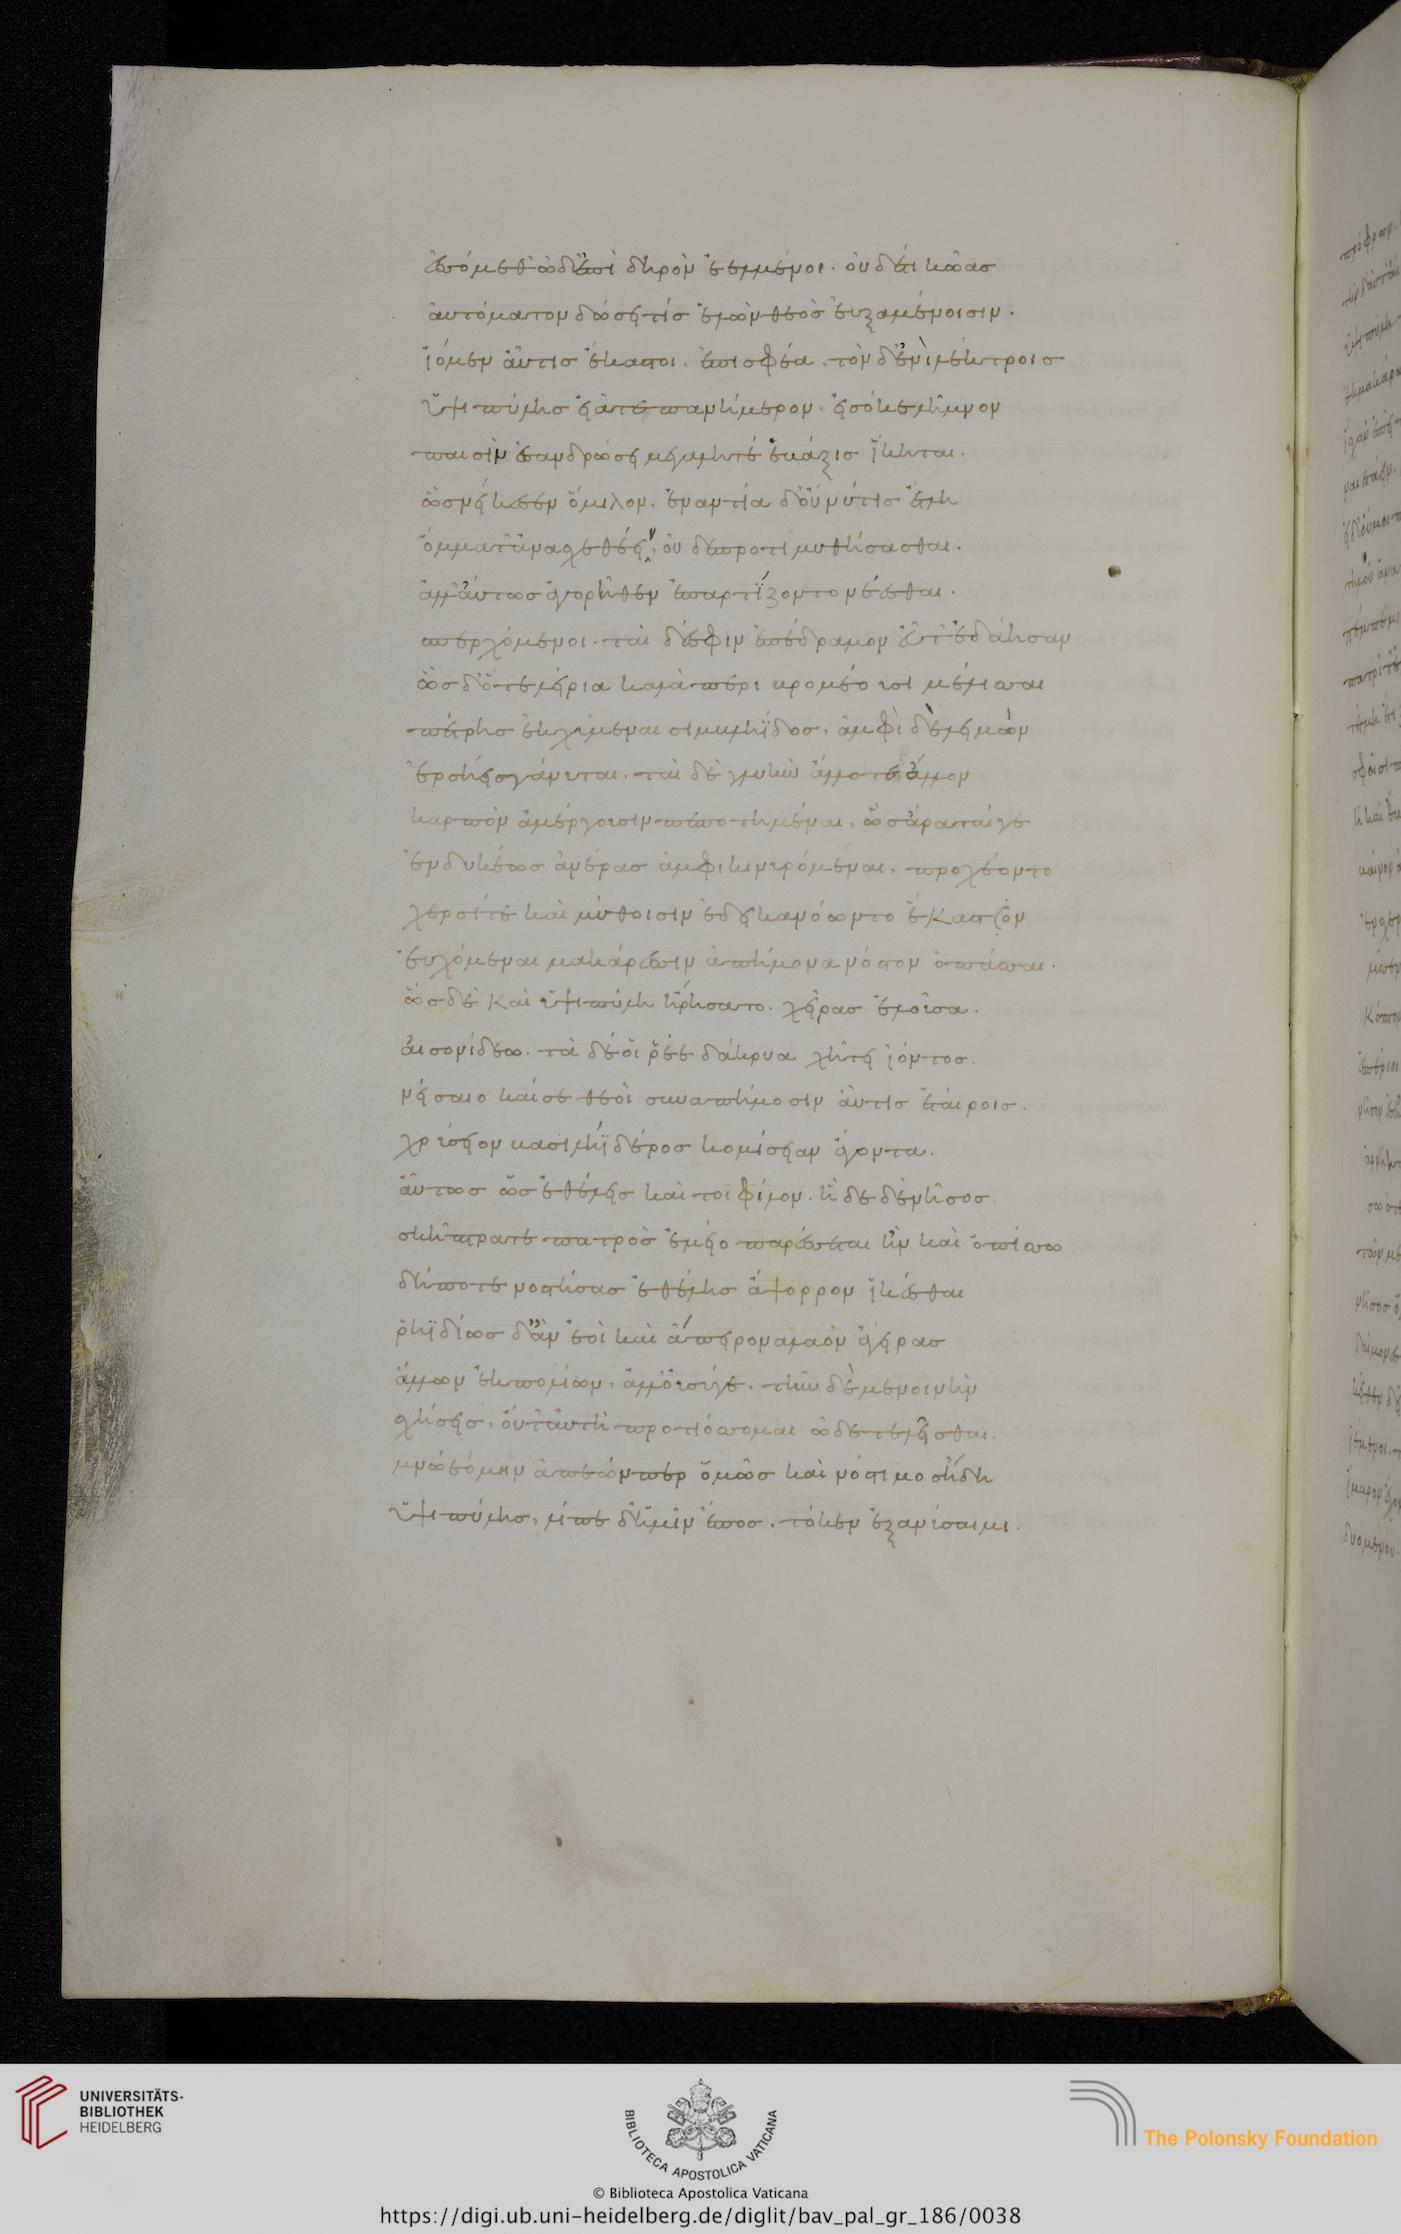 ἐσσόμεθ' ὧδ' ἐπὶ δηρὸν ἐελμένοι. οὐδ' ἔτι κῶας
ἀυτόματον δώσει τίς ἑλὼν θεὸς ἐυξαμένοισιν.
ἴομεν ἄυτις ἕκαστοι. ἐπι σφέα. τὸν δ' ἐνὶ λέκτροις
Ὑψιπύλης εἰᾶτε πανήμερον. εἰσόκε λῆμνον
παισὶν ἐσανδρώσει μεγάλητέ ἑ βάξις ἵκηται.
ὣς νείκεσεν ὅμιλον. ἐναντία δ' οὔ νύ τις ἔτλη
ὄμματ' ἀνασχεθέειν, οὐδὲ προτὶ μυθήσασθαι.
ἀλλ' ἄυτως ἀγορῆθεν ἐπαρτίζοντο νέεσθαι.
σπερχόμενοι. ταὶ δέ σφιν ἐπέδραμον εὖτ' ἐδάησαν
ὡς δ' ὅτε λείρια καλὰ περι βρομέουσι μέλισσαι
πέτρης ἐκχύμεναι σιμβληΐδος. ἀμφὶ δὲ λειμὼν
ἑρσήεις γάνυται. ταὶ δὲ γλυκὺν ἄλλοτε ἄλλον
καρπὸν ἀμέργουσιν πεποτημέναι. ὣς ἄρα ταίγε
ἐνδυκέως ἀνέρας ἀμφὶ κινυρόμεναι. προχέοντο
χερσίτε καὶ μύθοισιν ἐδεικανόωντο ἕκαστον
ἐυχόμεναι μακάρεσσιν ἀπήμονα νόστον ὀπάσσαι.
ὣς δὲ καὶ ὑψιπύλη ἠρήσατο. χεῖρας ἑλοῦσα.
ἀισονίδεω. τὰ δέ ὁι ῥέε δάκρυα χήτει ἰόντος.
νείσαιο καί σε θεοὶ συναπήμοσιν ἄυτις ἑταίροις.
χρύσειον βασιλῆϊ δέρος κομίσειαν ἄγοντα.
ἄυτως ὡς ἐθέλεις καὶ τοι φίλον. ἥδε δὲ νῆσος
σκῆπτρατε πατρὸς ἐμεῖο παρέσσεται ἢν καὶ ὀπίσσω
δήποτε νοστήσας ἐθέλης ἄψορρον ἱκέσθαι
ῥηϊδίως δ' ἂν ἑοὶ καὶ ἀπείρονα λαὸν ἀγείραις
ἄλλων ἐκ πολίων. ἀλλ' οὐ σύγε. τήνδε μενοινὴν
σχήσεις. οὔτ' ἀυτὴ προτιόσσομαι ὧδε τελεῖσθαι.
μνώεο μὴν ἀπεών περ ὅμως καὶ νόστιμος ἤδη
Ὑψιπύλης, λίπε δ' ἧμιν ἔπος. τόκεν ἐξανύσαιμι.
UNIVERSITÄTS-
BIBLIOTHEK
HEIDELBERG
BIBLIOTECA APOSTOLICA VATICANA
The Polonsky Foundation
© Biblioteca Apostolica Vaticana
https://digi.ub.uni-heidelberg.de/diglit/bav_pal_gr_186/0038